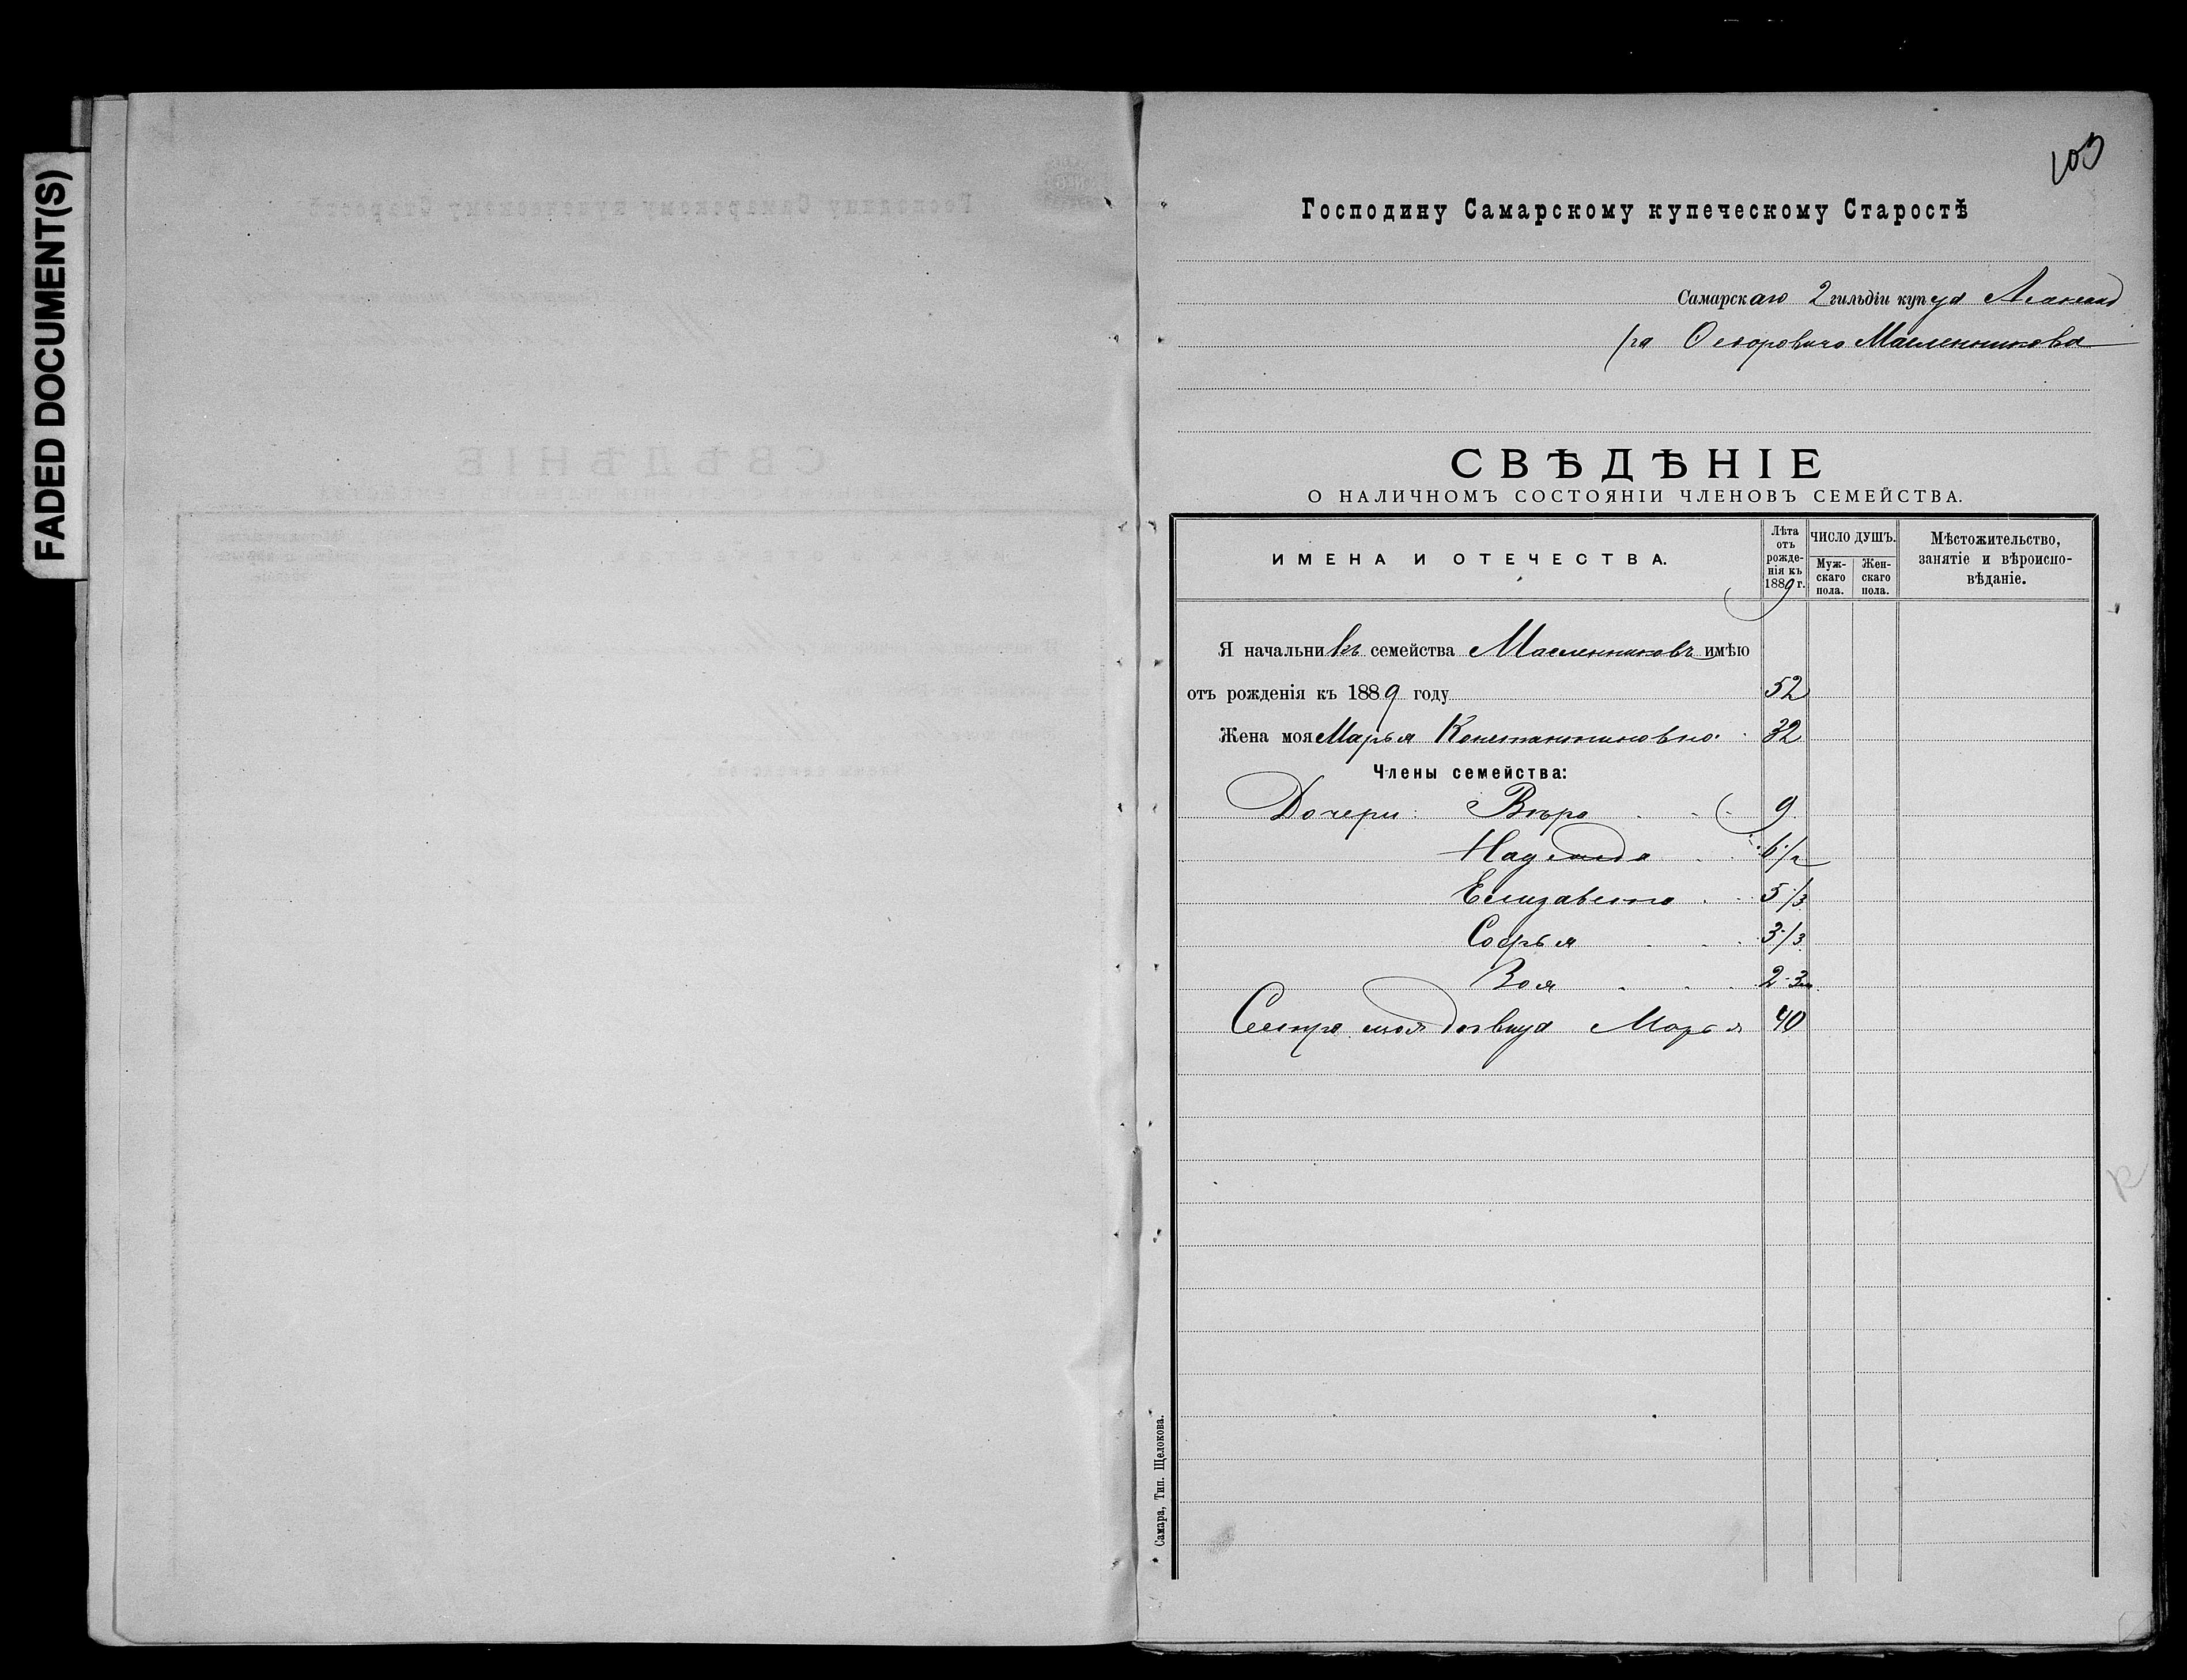 FADED DOCUMENT(S)
103
Господину Самарскому купеческому Старостѣ
Самарскаго 2 гильдіи купца
Маслeнникова
СВѢДѢНІЕ
О НАЛИЧНОМЪ СОСТОЯНІИ ЧЛЕНОВЪ СЕМЕЙСТВА.
ИМЕНА И ОТЕЧЕСТВА.
Лѣта отъ рожденія къ 1889 г.
ЧИСЛО ДУШЪ.
Мужскаго пола.
Женскаго пола.
Мѣстожительство, занятіе и вѣроисповѣданіе.
Я начальникъ семейства Масленниковъ имѣю
отъ рожденія къ 1889 году 52
Жена моя Марья Константиновна 32
Члены семейства:
Дочери: Вѣра 9
Надежда 6 1/2
Елизавета 5 1/3
Софья 3 1/3
Зоя 2 3м
Сестра моя дѣвица Марья 40
Самара, Тип. Щелокова.